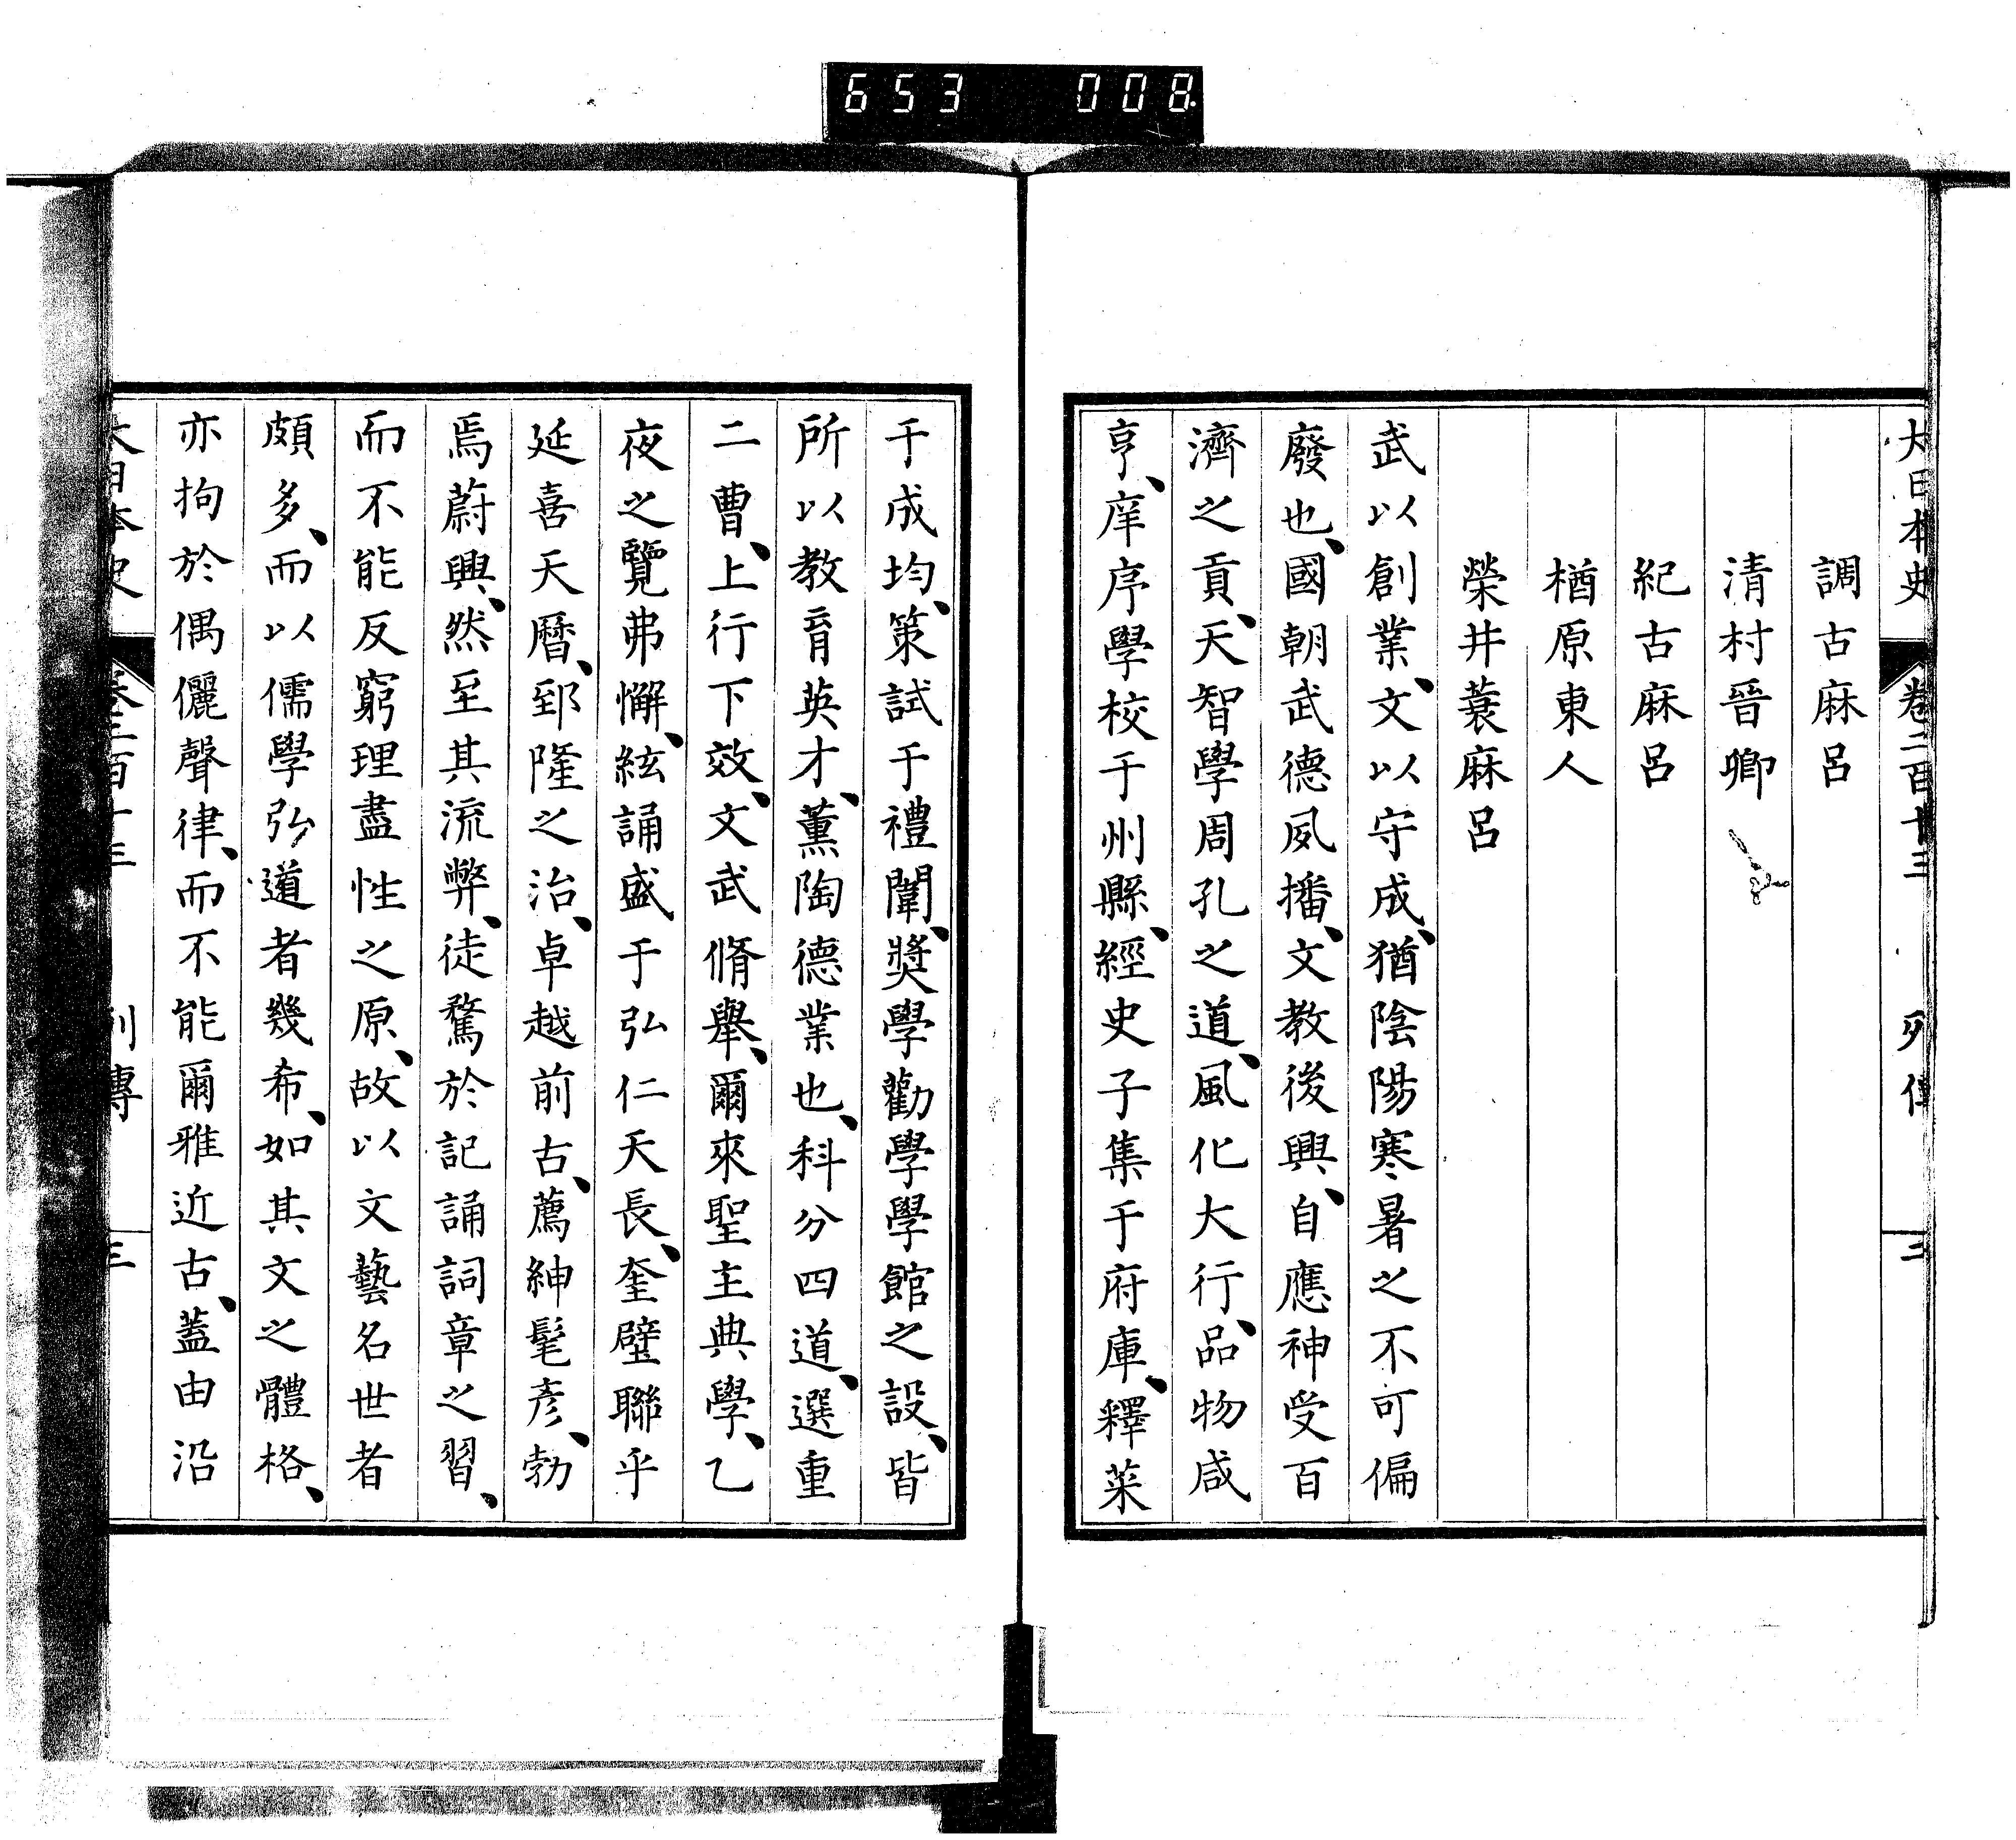 653 008
大日本史 卷二百十三 列傳 二
調古麻呂
清村晉卿
紀古麻呂
楢原東人
榮井蓑麻呂
武以創業、文以守成、猶陰陽寒暑之不可偏
廢也、國朝武德夙播、文教後興、自應神受百
濟之貢、天智學周孔之道、風化大行、品物咸
亨、庠序學校于州縣、經史子集于府庫、釋菜
于成均、策試于禮闈、奬學勸學學館之設、皆
所以教育英才、薰陶德業也、科分四道、選重
二曹、上行下效、文武脩舉、爾來聖主典學、乙
夜之覽弗懈、絃誦盛于弘仁天長、奎璧聯乎
延喜天曆、郅隆之治、卓越前古、薦紳髦彥、勃
焉蔚興、然至其流弊、徒騖於記誦詞章之習、
而不能反窮理盡性之原、故以文藝名世者
頗多、而以儒學弘道者幾希、如其文之體格、
亦拘於偶儷聲律、而不能爾雅近古、蓋由沿
大日本史 卷二百十三 列傳 三